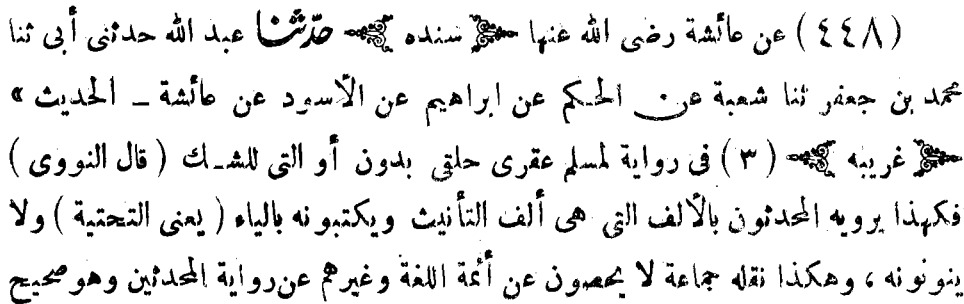 (٤٤٨) عن عائشة رضى الله عنها ﴿ سنده ﴾ حدّثنا عبد الله حدثنى أبى ثنا
محمد بن جعفر ثنا شعبة عن الحكم عن ابراهيم عن الأسود عن عائشة ــ الحديث »
﴿ غريبه ﴾ (٣) فى رواية لمسلم عقرى حلقى بدون أو التى للشك ( قال النووى )
فكهذا يرويه المحدثون بالألف التى هى ألف التأنيث ويكتبونه بالياء ( يعنى التحتية ) ولا
ينونونه ، وهكذا نقله جماعة لا يحصون عن أئمة اللغة وغيرهم عن رواية المحدثين وهو صحيح